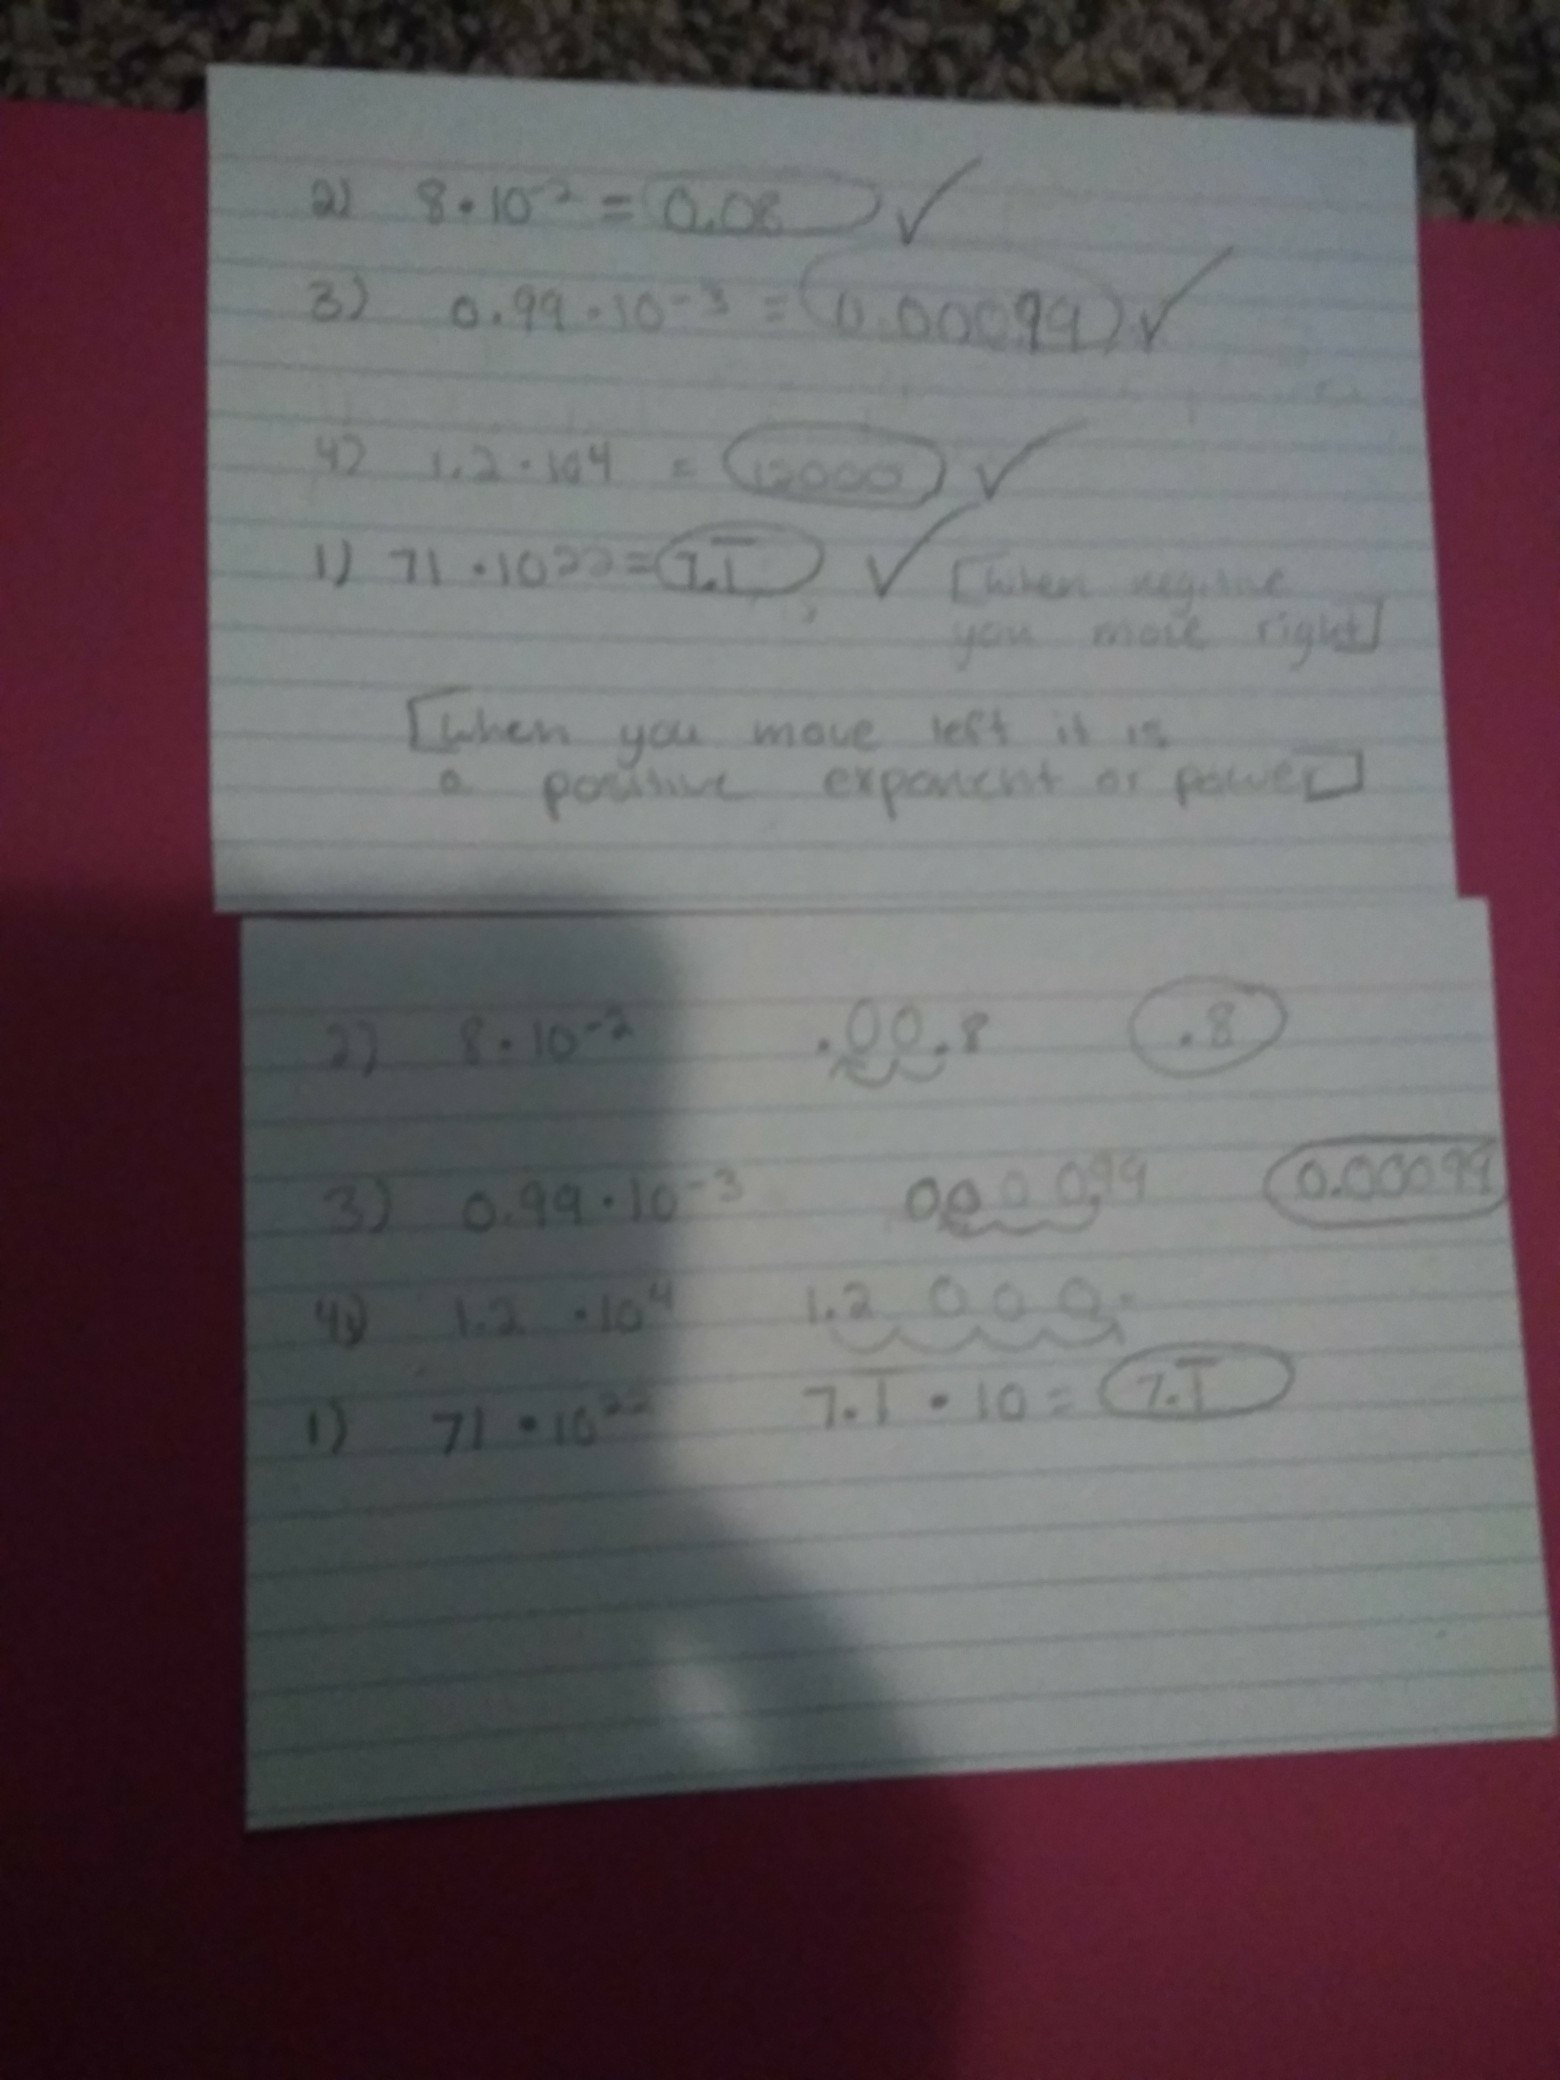 2) 8 • 10⁻² = 0.08 ✓
3) 0.99 • 10⁻³ = 0.00099 ✓
4) 1.2 • 10⁴ = 12000 ✓
1) 71 • 10²² = 7.1̅ ✓ [When negative
you move right]
[When you move left it is
a positive exponent or power]
2) 8 • 10⁻² .00.8 .8
3) 0.99 • 10⁻³ 00 0 0.99 0.00099
4) 1.2 • 10⁴ 1.2 0 0 0.
1) 71 • 10²² 7.1̅ • 10 = 7.1̅